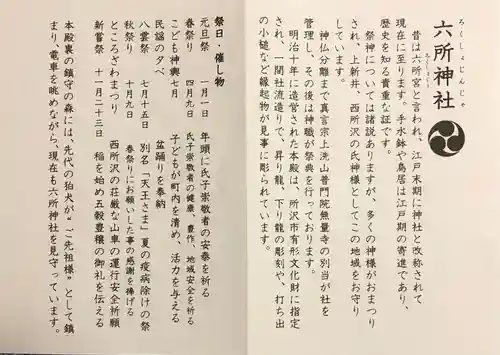 ろくしょじんじゃ
六所神社
昔は六所宮と言われ、江戸末期に神社と改称されて
現在に至ります。手水鉢や鳥居は江戸期の寄進であり、
歴史を知る貴重な証です。
祭神については諸説ありますが、多くの神様がおまつり
され、上新井、西所沢の氏神様としてこの地域をお守り
しています。
神仏分離まで真言宗上洗山普門院無量寺の別当が社を
管理し、その後は神職が祭典を行っております。
明治十年に造営された本殿は、所沢市有形文化財に指定
され、一間社流造りで、昇り龍、下り龍の彫刻や、打ち出
の小槌など縁起物が見事に彫られています。
祭日・催し物
元旦祭 一月一日 年頭に氏子崇敬者の安泰を祈る
春祭り 四月九日 氏子崇敬者の健康、豊作、地域安全を祈る
こども神輿 七月 子どもが町内を清め、活力を与える
民謡の夕べ 盆踊りを奉納
八雲祭 七月十五日 別名「天王さま」夏の疫病除けの祭
秋祭り 十月九日 春祭りにお願いした事の感謝を捧げる
ところざわまつり 西所沢の荘厳な山車の運行安全祈願
新嘗祭 十一月二十三日 稲を始め五穀豊穣の御礼を伝える
本殿裏の鎮守の森には、先代の狛犬が“ご先祖様”として鎮
まり、電車を眺めながら、現在も六所神社を見守っています。